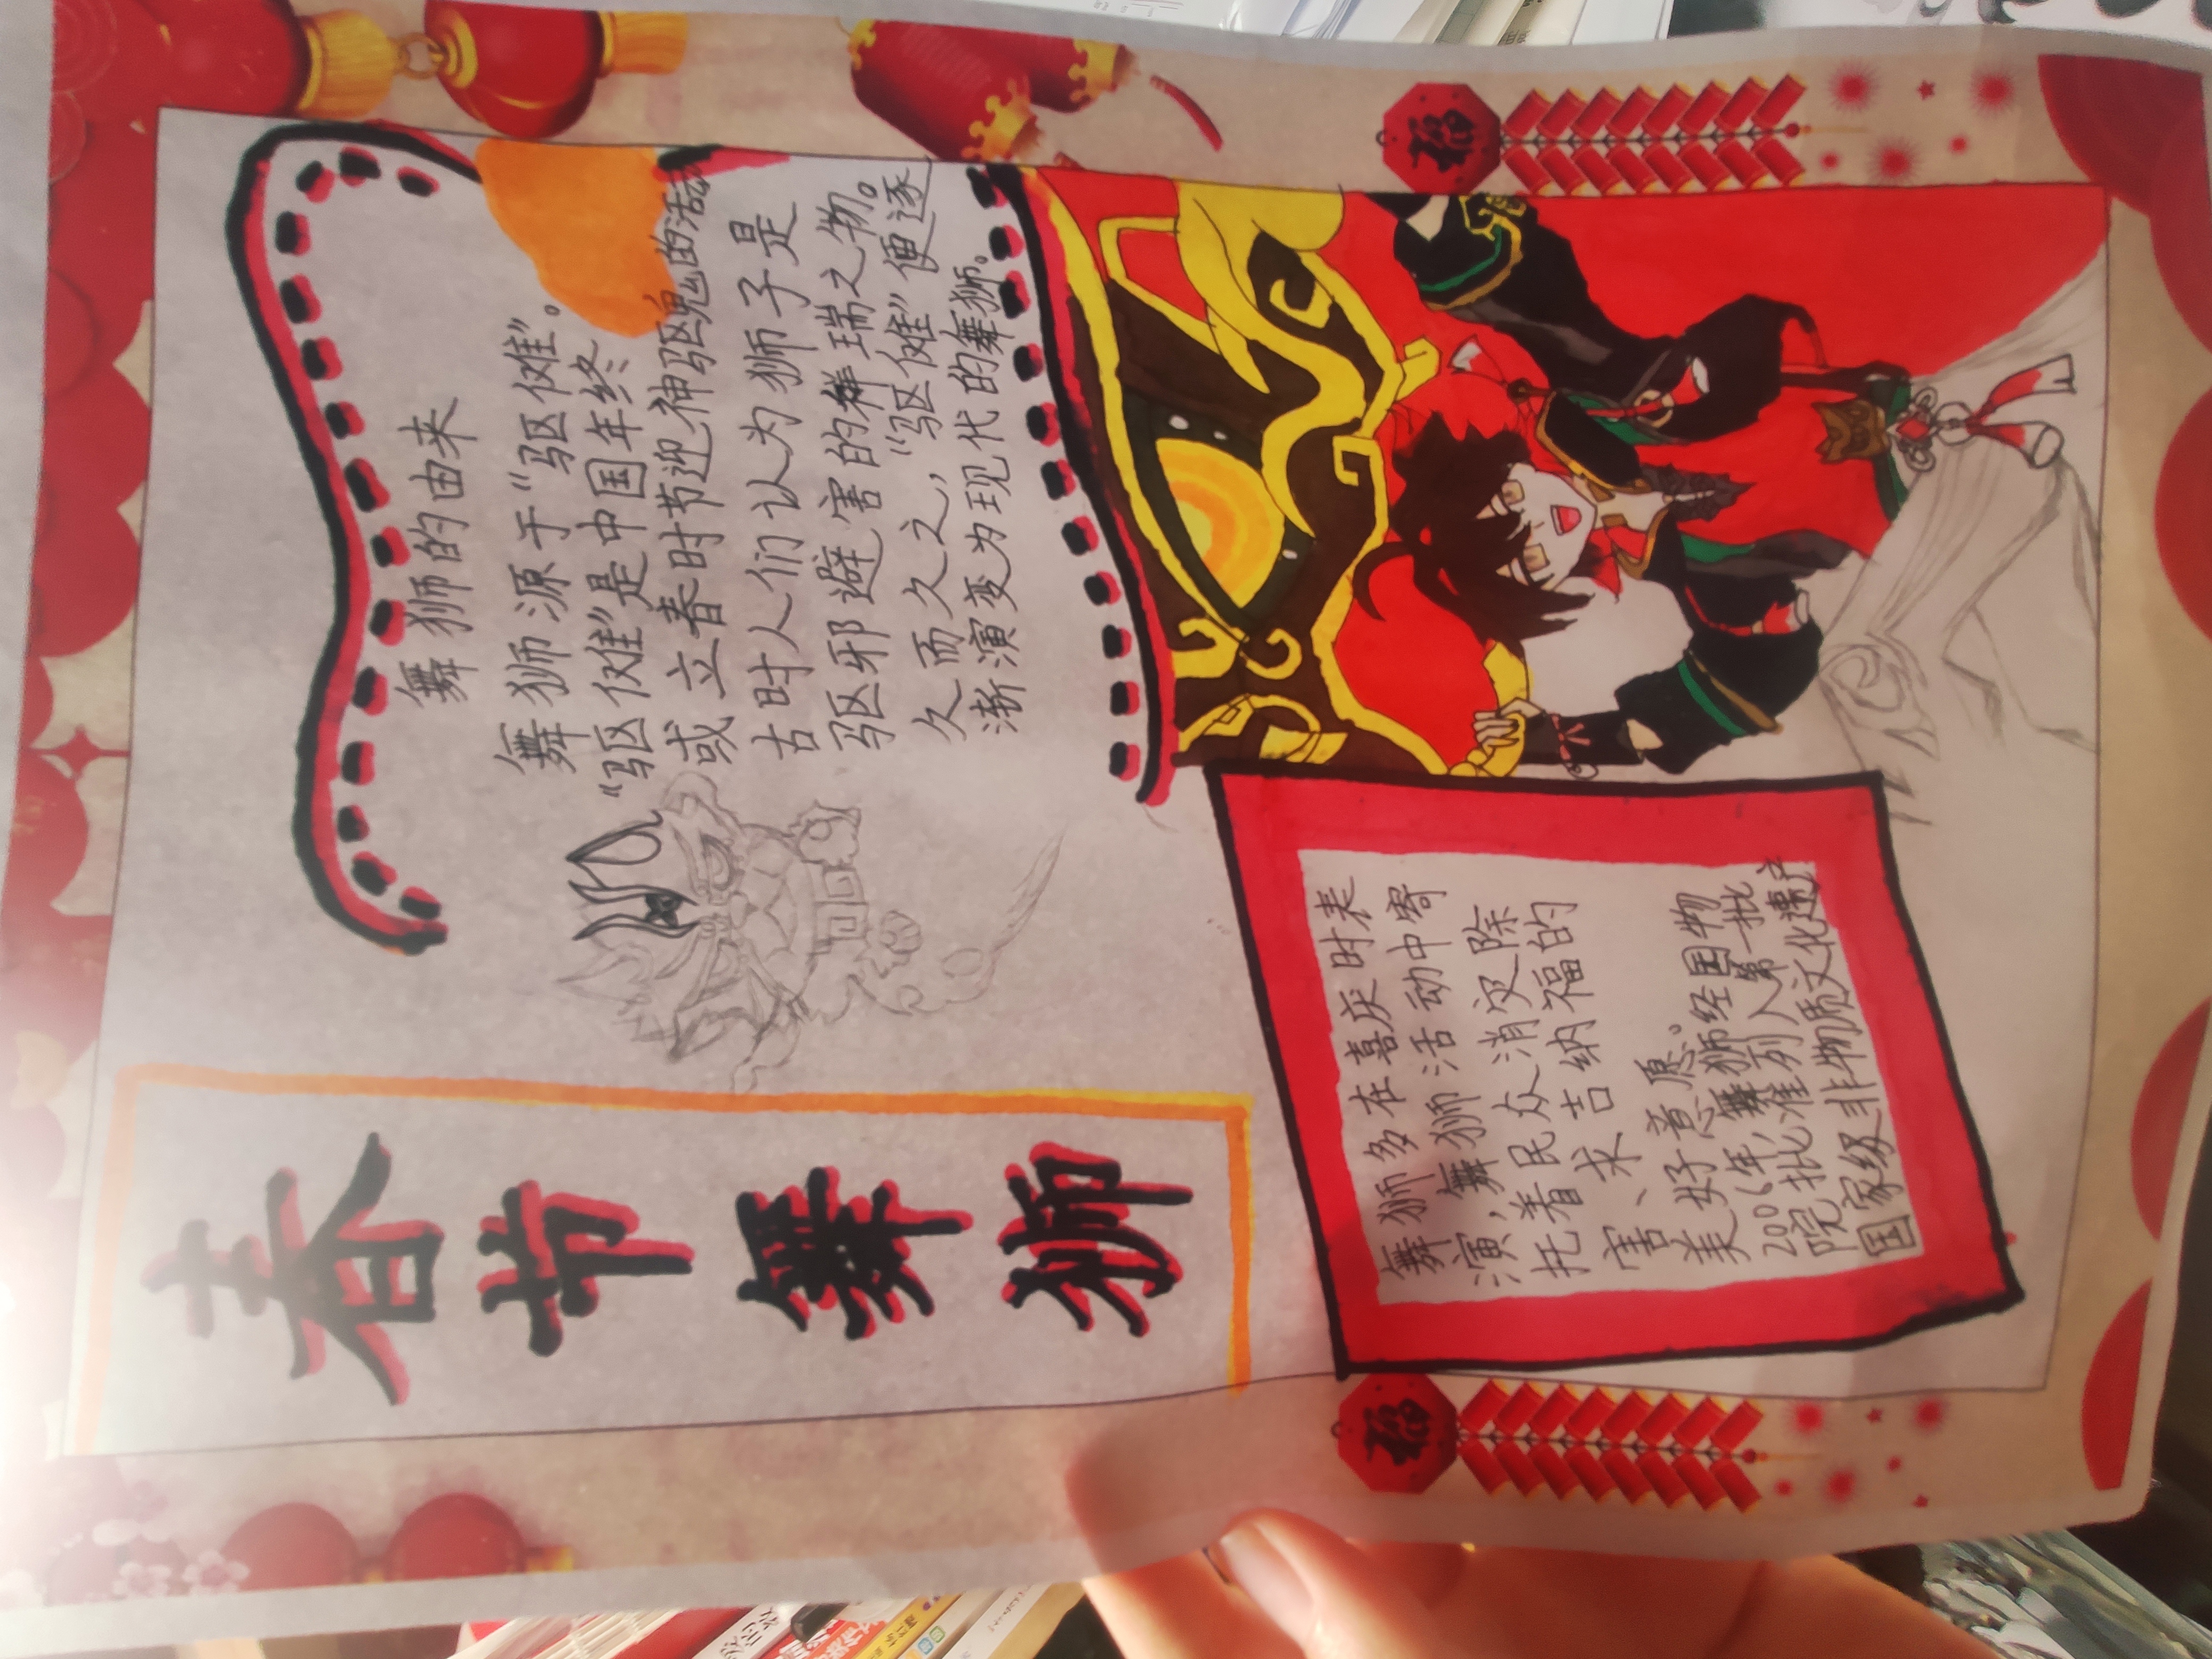 春节舞狮
舞狮的由来
舞狮源于“驱傩”。
“驱傩”是中国年终
或立春时节迎神驱鬼的活动
古时人们认为狮子是
驱邪避害的祥瑞之物。
久而久之，“驱傩”便逐
渐演变为现代的舞狮。
舞狮多在喜庆时表
演，舞狮活动中寄
托着民众消灾除
害、求吉纳福的
美好意愿。
2006年，舞狮经国物
院批准列入第一批
国家级非物质文化遗产
福
福